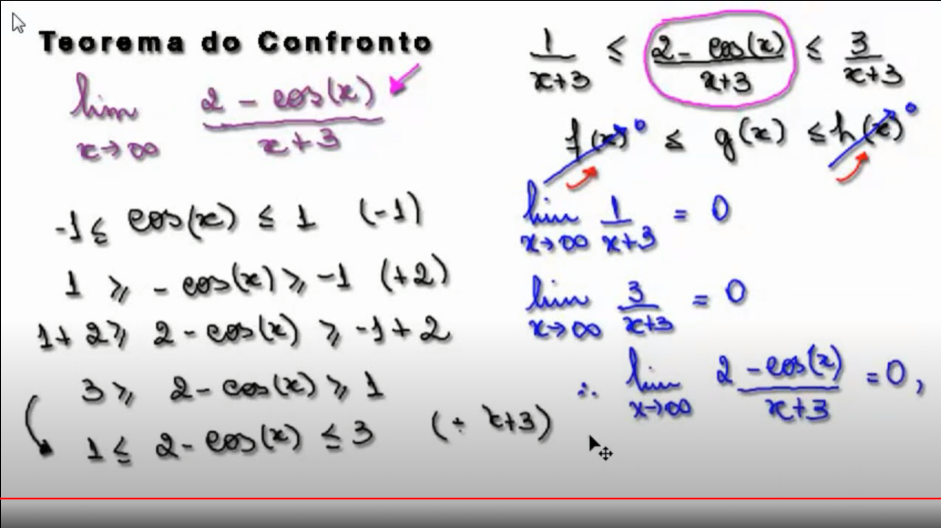 Teorema do Confronto
lim x→∞ (2 - cos(x))/(x+3)
-1 ≤ cos(x) ≤ 1 (-1)
1 ≥ - cos(x) ≥ -1 (+2)
1+2 ≥ 2 - cos(x) ≥ -1+2
3 ≥ 2 - cos(x) ≥ 1
1 ≤ 2 - cos(x) ≤ 3 (÷ x+3)
1/(x+3) ≤ (2 - cos(x))/(x+3) ≤ 3/(x+3)
f(x) 0 ≤ g(x) ≤ h(x) 0
lim x→∞ 1/(x+3) = 0
lim x→∞ 3/(x+3) = 0
∴ lim x→∞ (2 - cos(x))/(x+3) = 0,